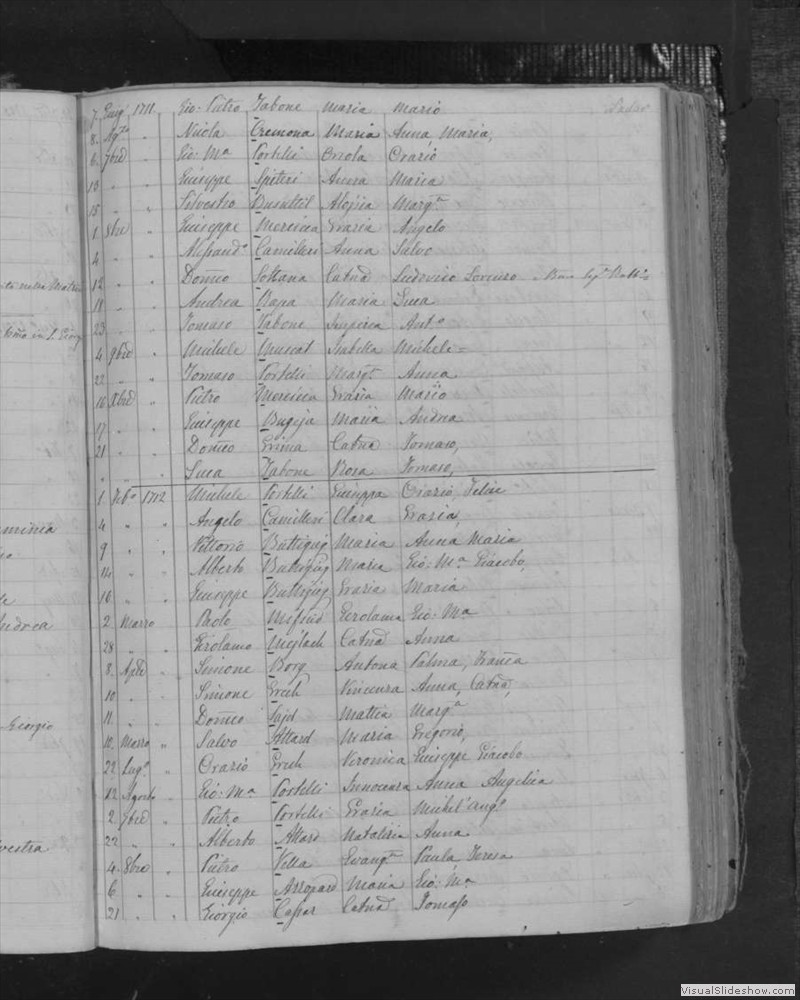 to nella Matri
in S. Giorg
minia
ndrea
Georgio
vestra
7. Giug. 1711 Gio: Pietro Zabone Maria Mario
8. Agto " Nicola Cremona Maria Anna, Maria,
6. 7bre " Gio: Ma Portelli Oriola Orazio
13 " " Giuseppe Spiteri Anna Maria
15 " " Silvestro Busuttil Marg.a
1 8bre " Giuseppe Mercieca Grazia Angelo
4 " " Alessand.o Camilleri Anna Salvo
12 " " Domco Sottana Catna Ludovico Lorenzo
18 " " Andrea Rapa Maria Luca
23 " " Tomaso Zabone Ant.o
4 9bre " Michele Muscat Isabella Michele =
22 " " Tomaso Portelli Marg.ta Anna
10 Xbre " Pietro Mercieca Grazia Maria
17 " " Giuseppe Bugeja Maria Andrea
21 " " Domco Grima Catna Tomaso,
" " " Luca Zabone Rosa Tomaso,
1 Feb.o 1712 Michele Portelli Giuseppa Orazio, Felice
4 " " Angelo Camilleri Clara Grazia,
9 " " Vittorio Buttigieg Maria Anna Maria
14 " " Alberto Buttigieg Maria Gio: Ma Giacobo,
16 " " Giuseppe Buttigieg Grazia Maria
2 Marzo " Paolo Mifsud Gerolama Gio: Ma
28 " " Girolamo Mejlach Catna Anna
8. Aple " Simone Borg Antona Palma, Franca
10 " " Simone Grech Vincenza Anna, Catna,
11. " " Domco Said Mattia Marg.a
10. Marzo " Salvo Attard Maria Gregorio,
22 Lug.o " Orazio Grech Veronica Giuseppe Giacobo
12 Agosto " Gio: Ma Portelli Innocenza Anna Angelica
2 7bre " Pietro Portelli Grazia Michel'Ang.o
22 " " Alberto Attard Natalizia Anna
4 8bre " Pietro Vella Evang.ta Paula Teresa
6 " " Giuseppe Azzopard Maria Gio: Ma
21 " " Giorgio Caspar Catna Tomaso
VisualSlideshow.com